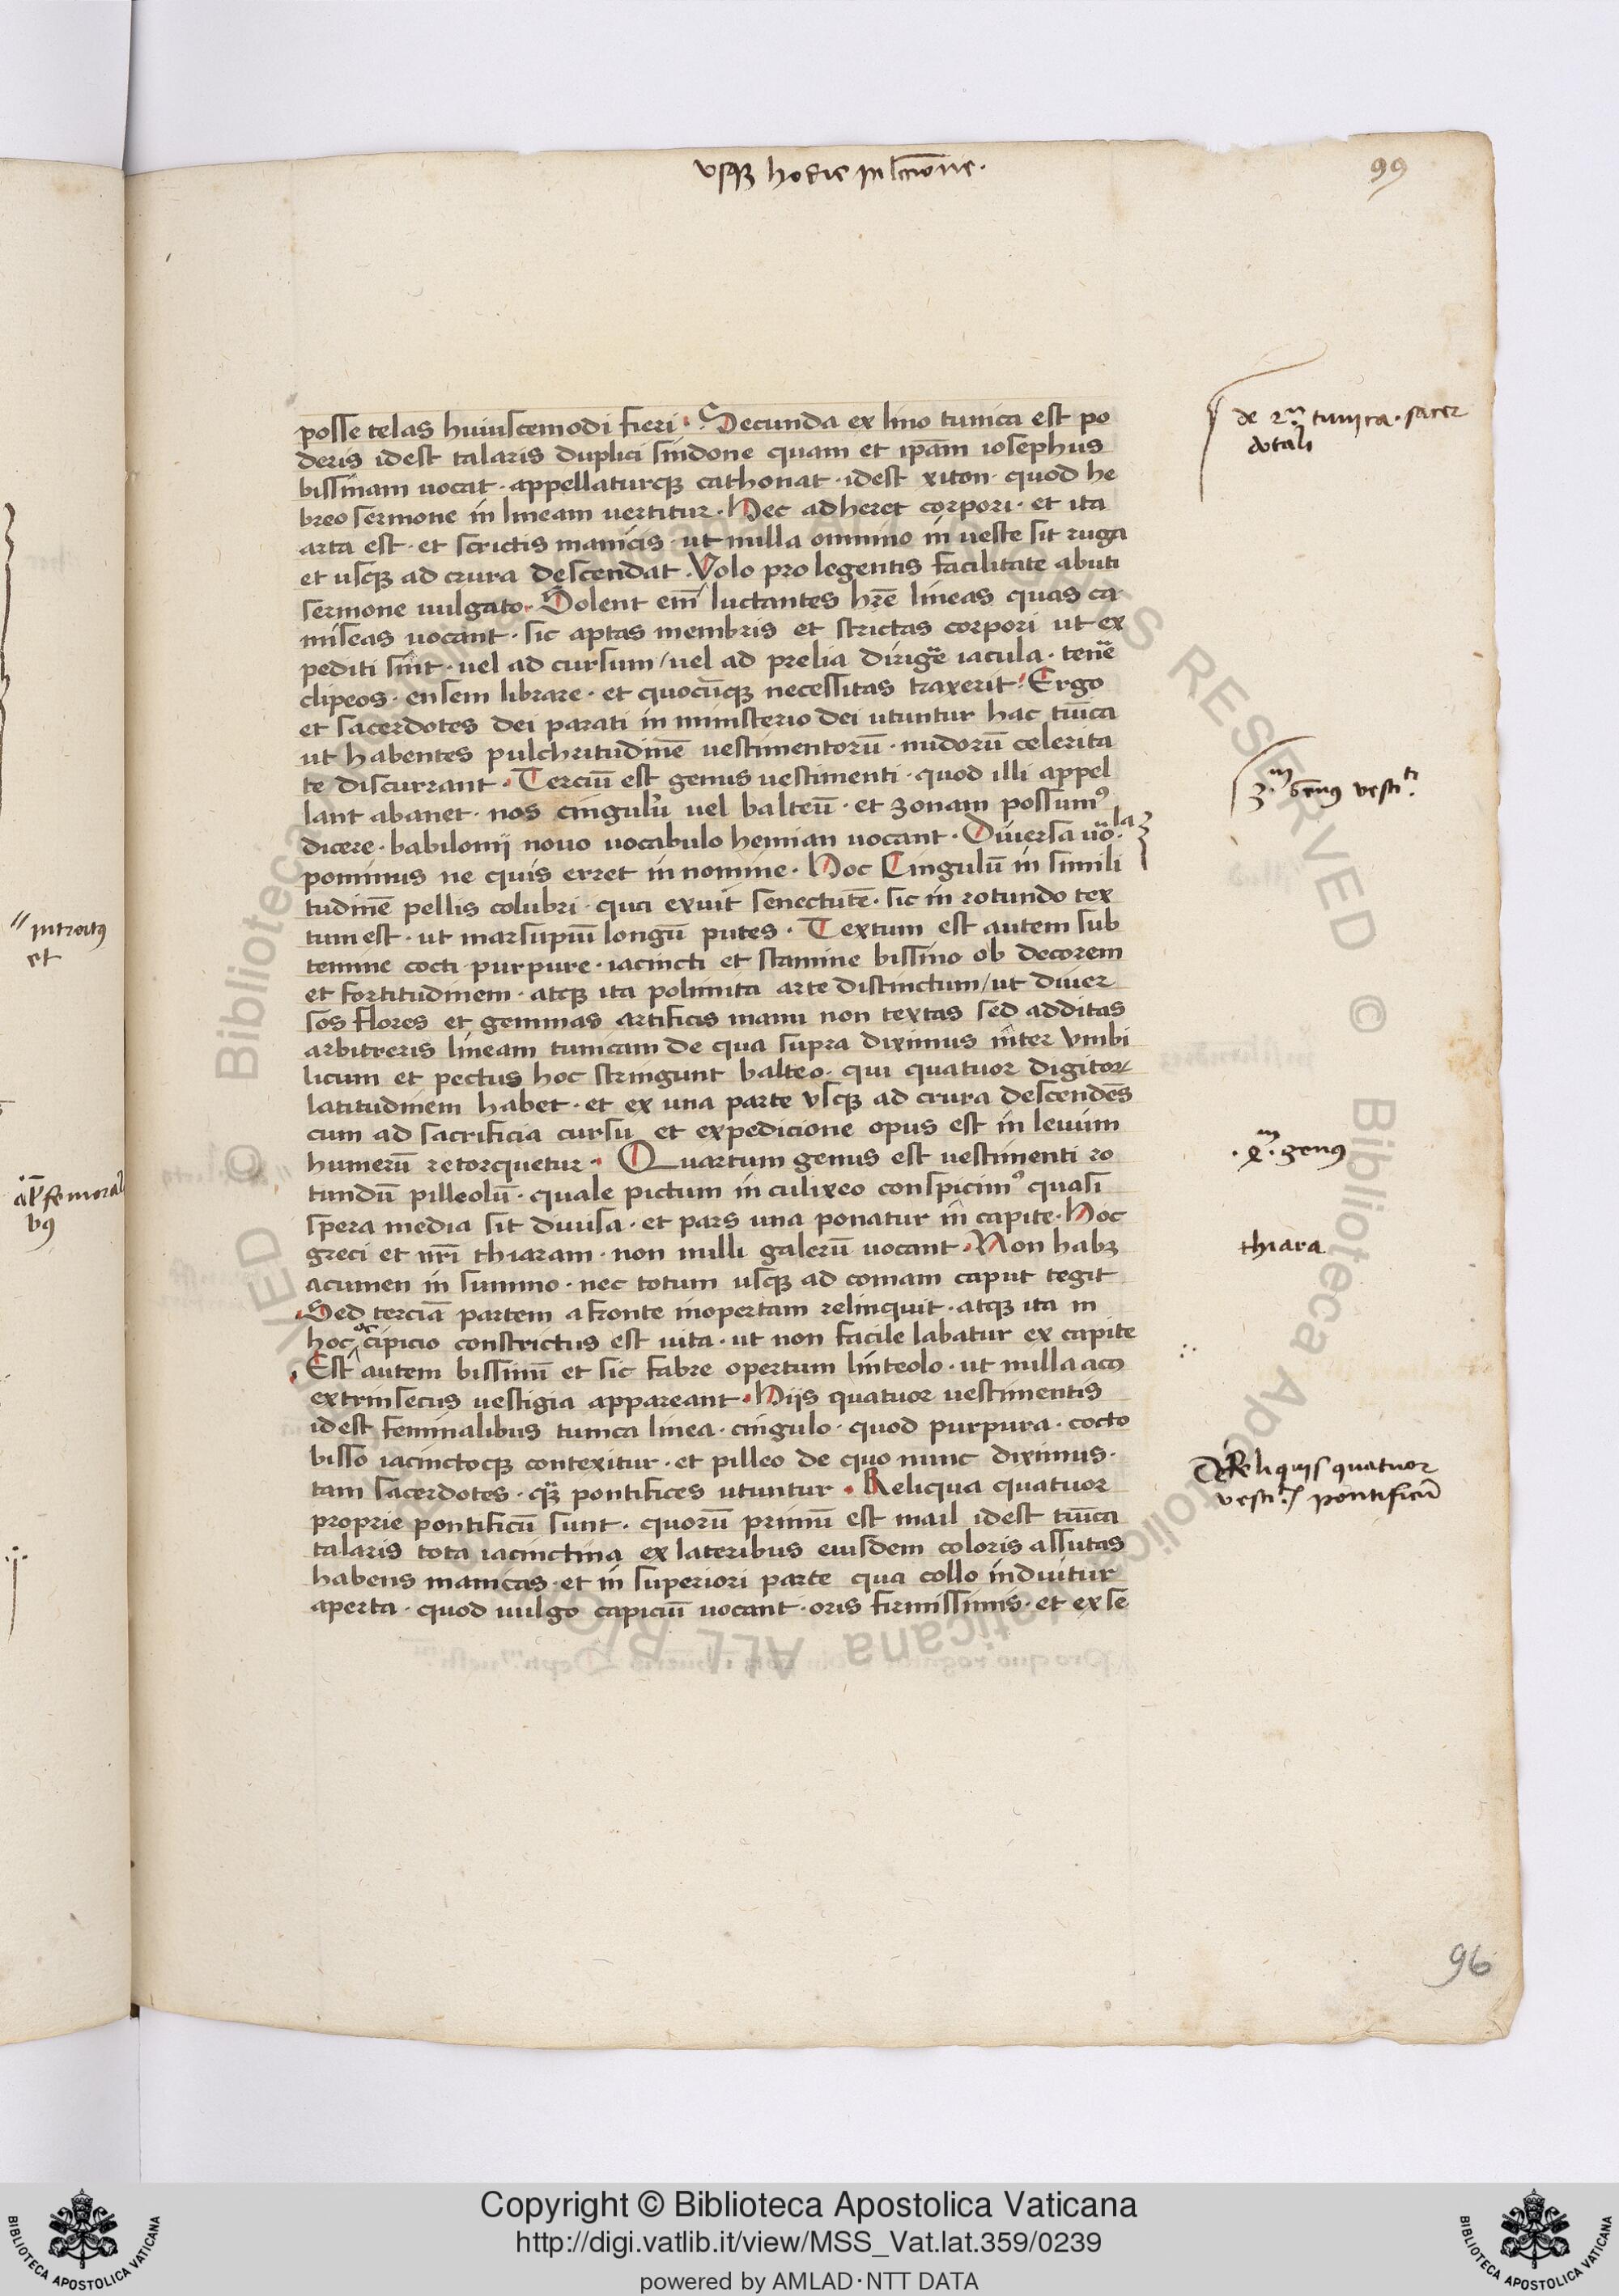 usqꝫ hodie in lcc̄ione.
99
posse telas huiuscemodi fieri · Secunda ex lino tunica est po
deris idest talaris duplici sindone quam et ip̄am iosephus
bissinam uocat · appellaturqꝫ cathonat · idest xiton · quod he
breo sermone in lineam uertitur · Hec adheret corpori · et ita
arta est · et strictis manicis · ut nulla omnino in ueste sit ruga
et usqꝫ ad crura descendat · Volo pro legentis facilitate abuti
sermone uulgato · Solent em̄ luctantes hr̄e lineas quas ca
miseas uocant · sic aptas membris et strictas corpori ut ex
pediti sint · uel ad cursum / uel ad prelia dirigē iacula · tenē
clipeos · ensem librare · et quocūqꝫ necessitas traxerit · Ergo
et sacerdotes dei parati in ministerio dei utuntur hac tūica
ut habentes pulchritudinē uestimentorū · nudorū celerita
te discurrant · Terciū est genus uestimenti · quod illi appel
lant abanet · nos cingulū uel balteū · et zonam possumꝰ
dicere · babilonij nouo uocabulo hemian uocant · Diuersa uo.la
ponimus ne quis erret in nomine · Hoc Cingulū in simili
tudinē pellis colubri · qua exuit senectutē · sic in rotundo tex
tum est · ut marsupiū longū putes · Textum est autem sub
temine cocti · purpure · iacincti et stamine bissino ob decorem
et fortitudinem · atqꝫ ita polimita arte distinctum / ut diuer
sos flores et gemmas artificis manu non textas sed additas
arbitreris lineam tunicam de qua supra diximus inter umbi
licum et pectus hoc stringunt balteo · qui quatuor digitoꝝ
latitudinem habet · et ex una parte usqꝫ ad crura descendēs
cum ad sacrificia cursu et expedicione opus est in leuum
humerū retorquetur · Quartum genus est uestimenti ro
tundū pilleolū · quale pictum in culixeo conspicimꝰ quasi
spera media sit diuisa · et pars una ponatur in capite · Hoc
greci et nr̄i thiaram · non nulli galerū uocant · Non habꝫ
acumen in summo · nec totum usqꝫ ad comam caput tegit
Sed terciā partem a fronte inopertam relinquit · atqꝫ ita in
hoc accipicio constrictus est uita · ut non facile labatur ex capite
Est autem bissinū et sic fabre opertum linteolo · ut nulla acꝰ
extrinsecus uestigia appareant · Hijs quatuor uestimentis
idest feminalibus tunica linea · cingulo · quod purpura · cocto
bisso iacinctoqꝫ contexitur · et pilleo de quo nunc diximus ·
tam sacerdotes · qᷓ pontifices utuntur · Reliqua quatuor
proprie pontificū sunt · quorū primū est mail idest tūica
talaris tota iacinctina ex lateribus eiusdem coloris assutas
habens manicas · et in superiori parte qua collo induitur
aperta · quod uulgo capiciū uocant · oris firmissimis · et ex se
de 2ᵃ tunica · sacer
dotali
3.ᵐ genꝰ vesti.ᵗⁱ
.4.ᵐ genꝰ
thiara
De Reliquis quatuor
vesti. pontificū
"introitꝰ
et
al' femorali
bꝰ
96
Copyright © Biblioteca Apostolica Vaticana
http://digi.vatlib.it/view/MSS_Vat.lat.359/0239
powered by AMLAD·NTT DATA
BIBLIOTECA APOSTOLICA VATICANA
BIBLIOTECA APOSTOLICA VATICANA